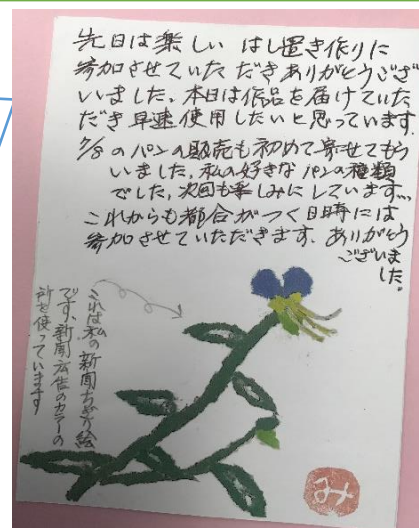 先日は楽しい はし置き作りに
参加させていただきありがとうござ
いました。本日は作品を届けていた
だき早速使用したいと思っています
7/8のパンの販売も初めて寄せてもら
いました。私の好きなパンの種類
でした。次回も楽しみにしています…
これからも都合がつく日時には
参加させていただきます。ありがとう
ございま
した。
これは私の新聞ちぎり絵
です。新聞広告のカラーの
所を使っています
み